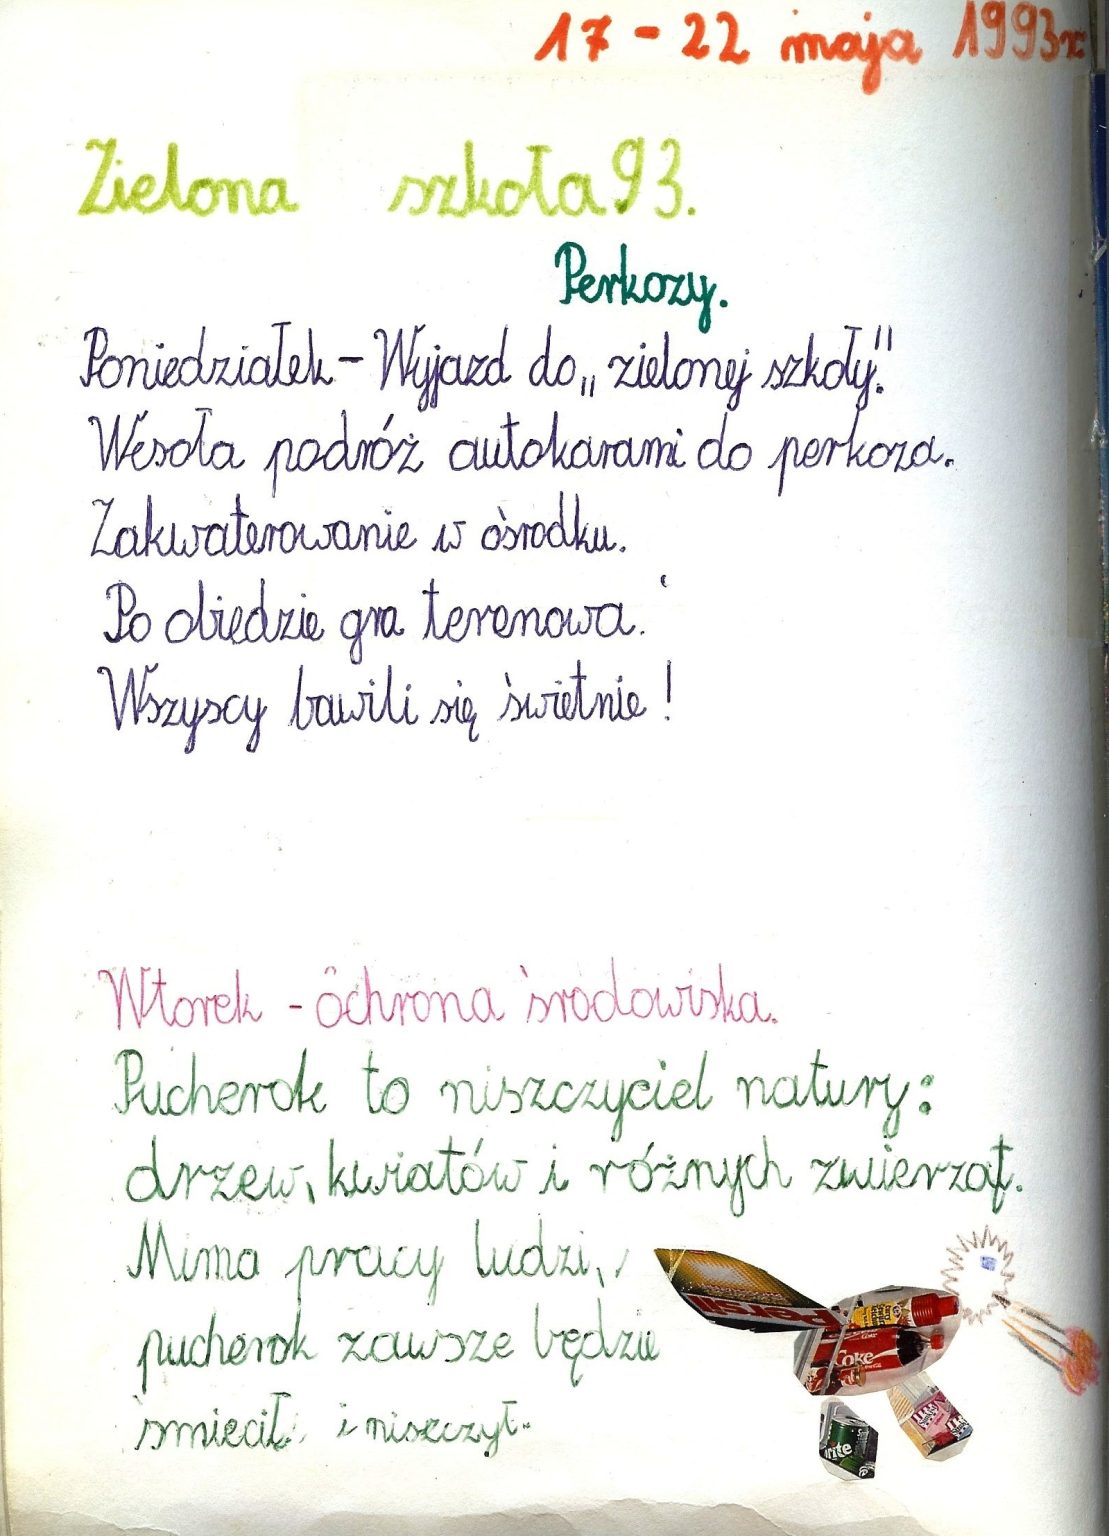 17 - 22 maja 1993r
Zielona szkoła 93.
Perkozy.
Poniedziałek - Wyjazd do „zielonej szkoły."
Wesoła podróż autokarami do perkoza.
Zakwaterowanie w ośrodku.
Po obiedzie gra terenowa.
Wszyscy bawili się świetnie!
Wtorek - ochrona środowiska.
Pucherok to niszczyciel natury:
drzew, kwiatów i różnych zwierząt.
Mimo pracy ludzi,
pucherok zawsze będzie
śmiecił i niszczył.
Persil
Coke
rite